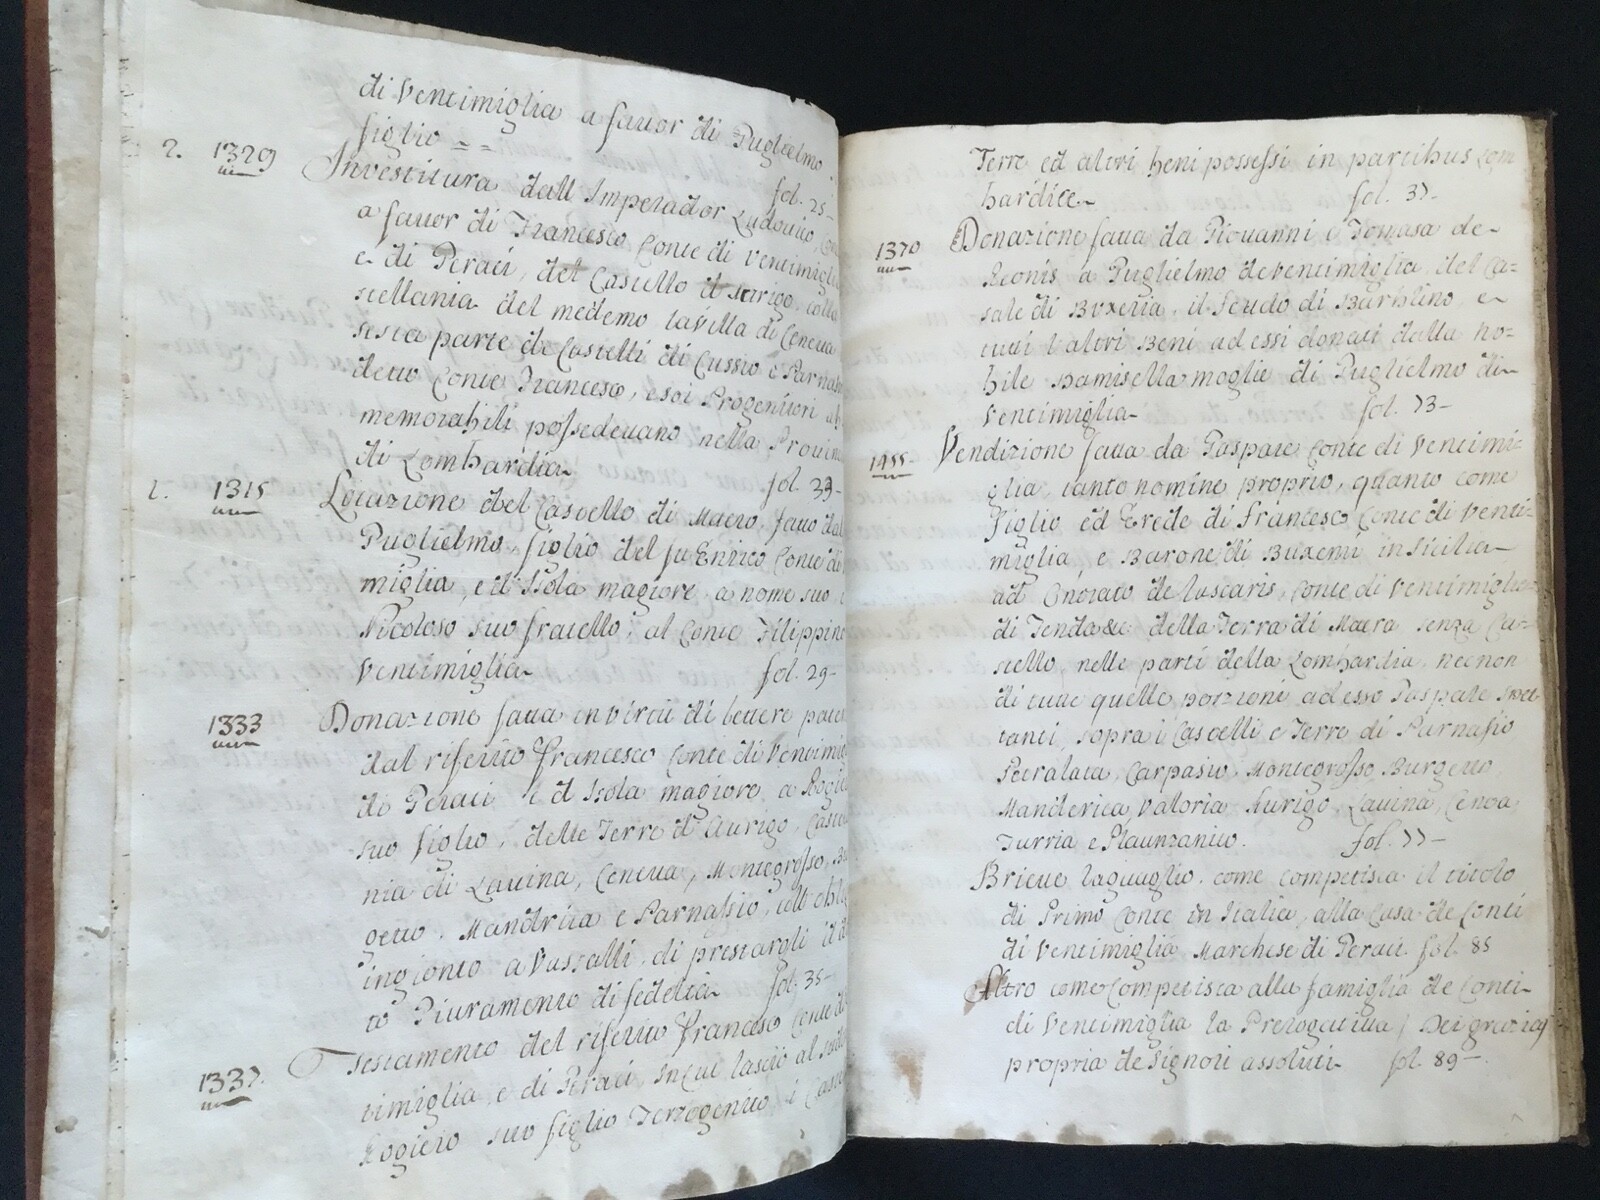 di Ventimiglia a favor di Guglielmo
figlio = = fol. 25-
2. 1329 Investitura dall Imperador Ludovico,
a favor di Francesco Conte di Ventimiglia
e di Geraci, del Castello d'Aurigo, colla
stellania del medemo, la Villa di Ceneva
sesta parte de Castelli di Cussio e Parnasio
detto Conte Francesco, e soi Progenitori ab
memorabili possedevano nella Provin
di Lombardia fol. 33-
1. 1315 Locazione del Castello di Maro, fatto dal
Guglielmo, figlio del fu Enrico Conte di
miglia, e d'Isola magiore a nome suo, e
Nicoloso suo fratello, al Conte Filippino
Ventimiglia fol. 29-
1333 Donazione fatta in virtù di lettere paten
dal riferito Francesco Conte di Ventimig
di Geraci e d'Isola magiore a Rogie
suo figlio, delle Terre d'Aurigo, Castel
nia di Lavina, Ceneva, Montegrosso, Bu
getto, Mandrica e Parnassio, coll obbli
ingionto a Vassalli, di prestargli il d
to Giuramento di fedeltà fol. 35-
1337. Testamento del riferito Francesco Conte di
timiglia, e di Geraci, in cui lasciò al
Rogiero suo figlio Terzogenito, i Castel
Terre ed altri beni possessi in partibus Lom
bardiæ fol. 37-
1370 Donazione fatta da Giovanni e Tomasa de
Leonis, a Guglielmo de Ventimiglia, del Ca=
sale di Buxeria, il feudo di Barblino, e
tutti l'altri Beni ad essi donati dalla no=
bile Damisella moglie di Guglielmo di
Ventimiglia fol. 73-
1455 Vendizione fatta da Gaspare Conte di Ventimi
glia, tanto nomine proprio, quanto come
Figlio ed Erede di Francesco Conte di Venti=
miglia, e Barone di Buxemi in Sicilia
ad Onorato de Lascaris, Conte di Ventimiglia
di Tenda &c. della Terra di Maura senza Ca=
stello, nelle parti della Lombardia, necnon
di tutte quelle porzioni ad esso Gaspare spet
tanti, sopra i Castelli e Terre di Parnasio
Petralata, Carpasio, Montegrosso, Burgetto,
Manderica, Valloria, Aurigo, Lavina, Cenoa
Turria e Plaunzanico. fol. 77-
Brieve raguaglio, come competisca il titolo
di Primo Conte in Italia, alla Casa de Conti
di Ventimiglia Marchese di Geraci. fol. 85
Altro come Competisca alla famiglia de Conti
di Ventimiglia la Prerogativa / Dei gratia /
propria de Signori assoluti. fol. 89-